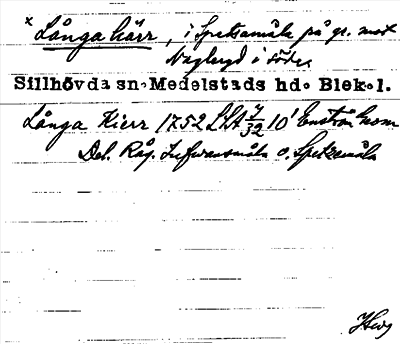 × Långa kärr, i Spetsamåla på gr. mot
Vaglyrd i söder
Sillhövda sn. Medelstads hd. Blek.l.
Långa Kierr 1752 LSA 7/32 10' Enstr. Genom
Del. Råg. Isefwarsmåla o. Spetzemåla